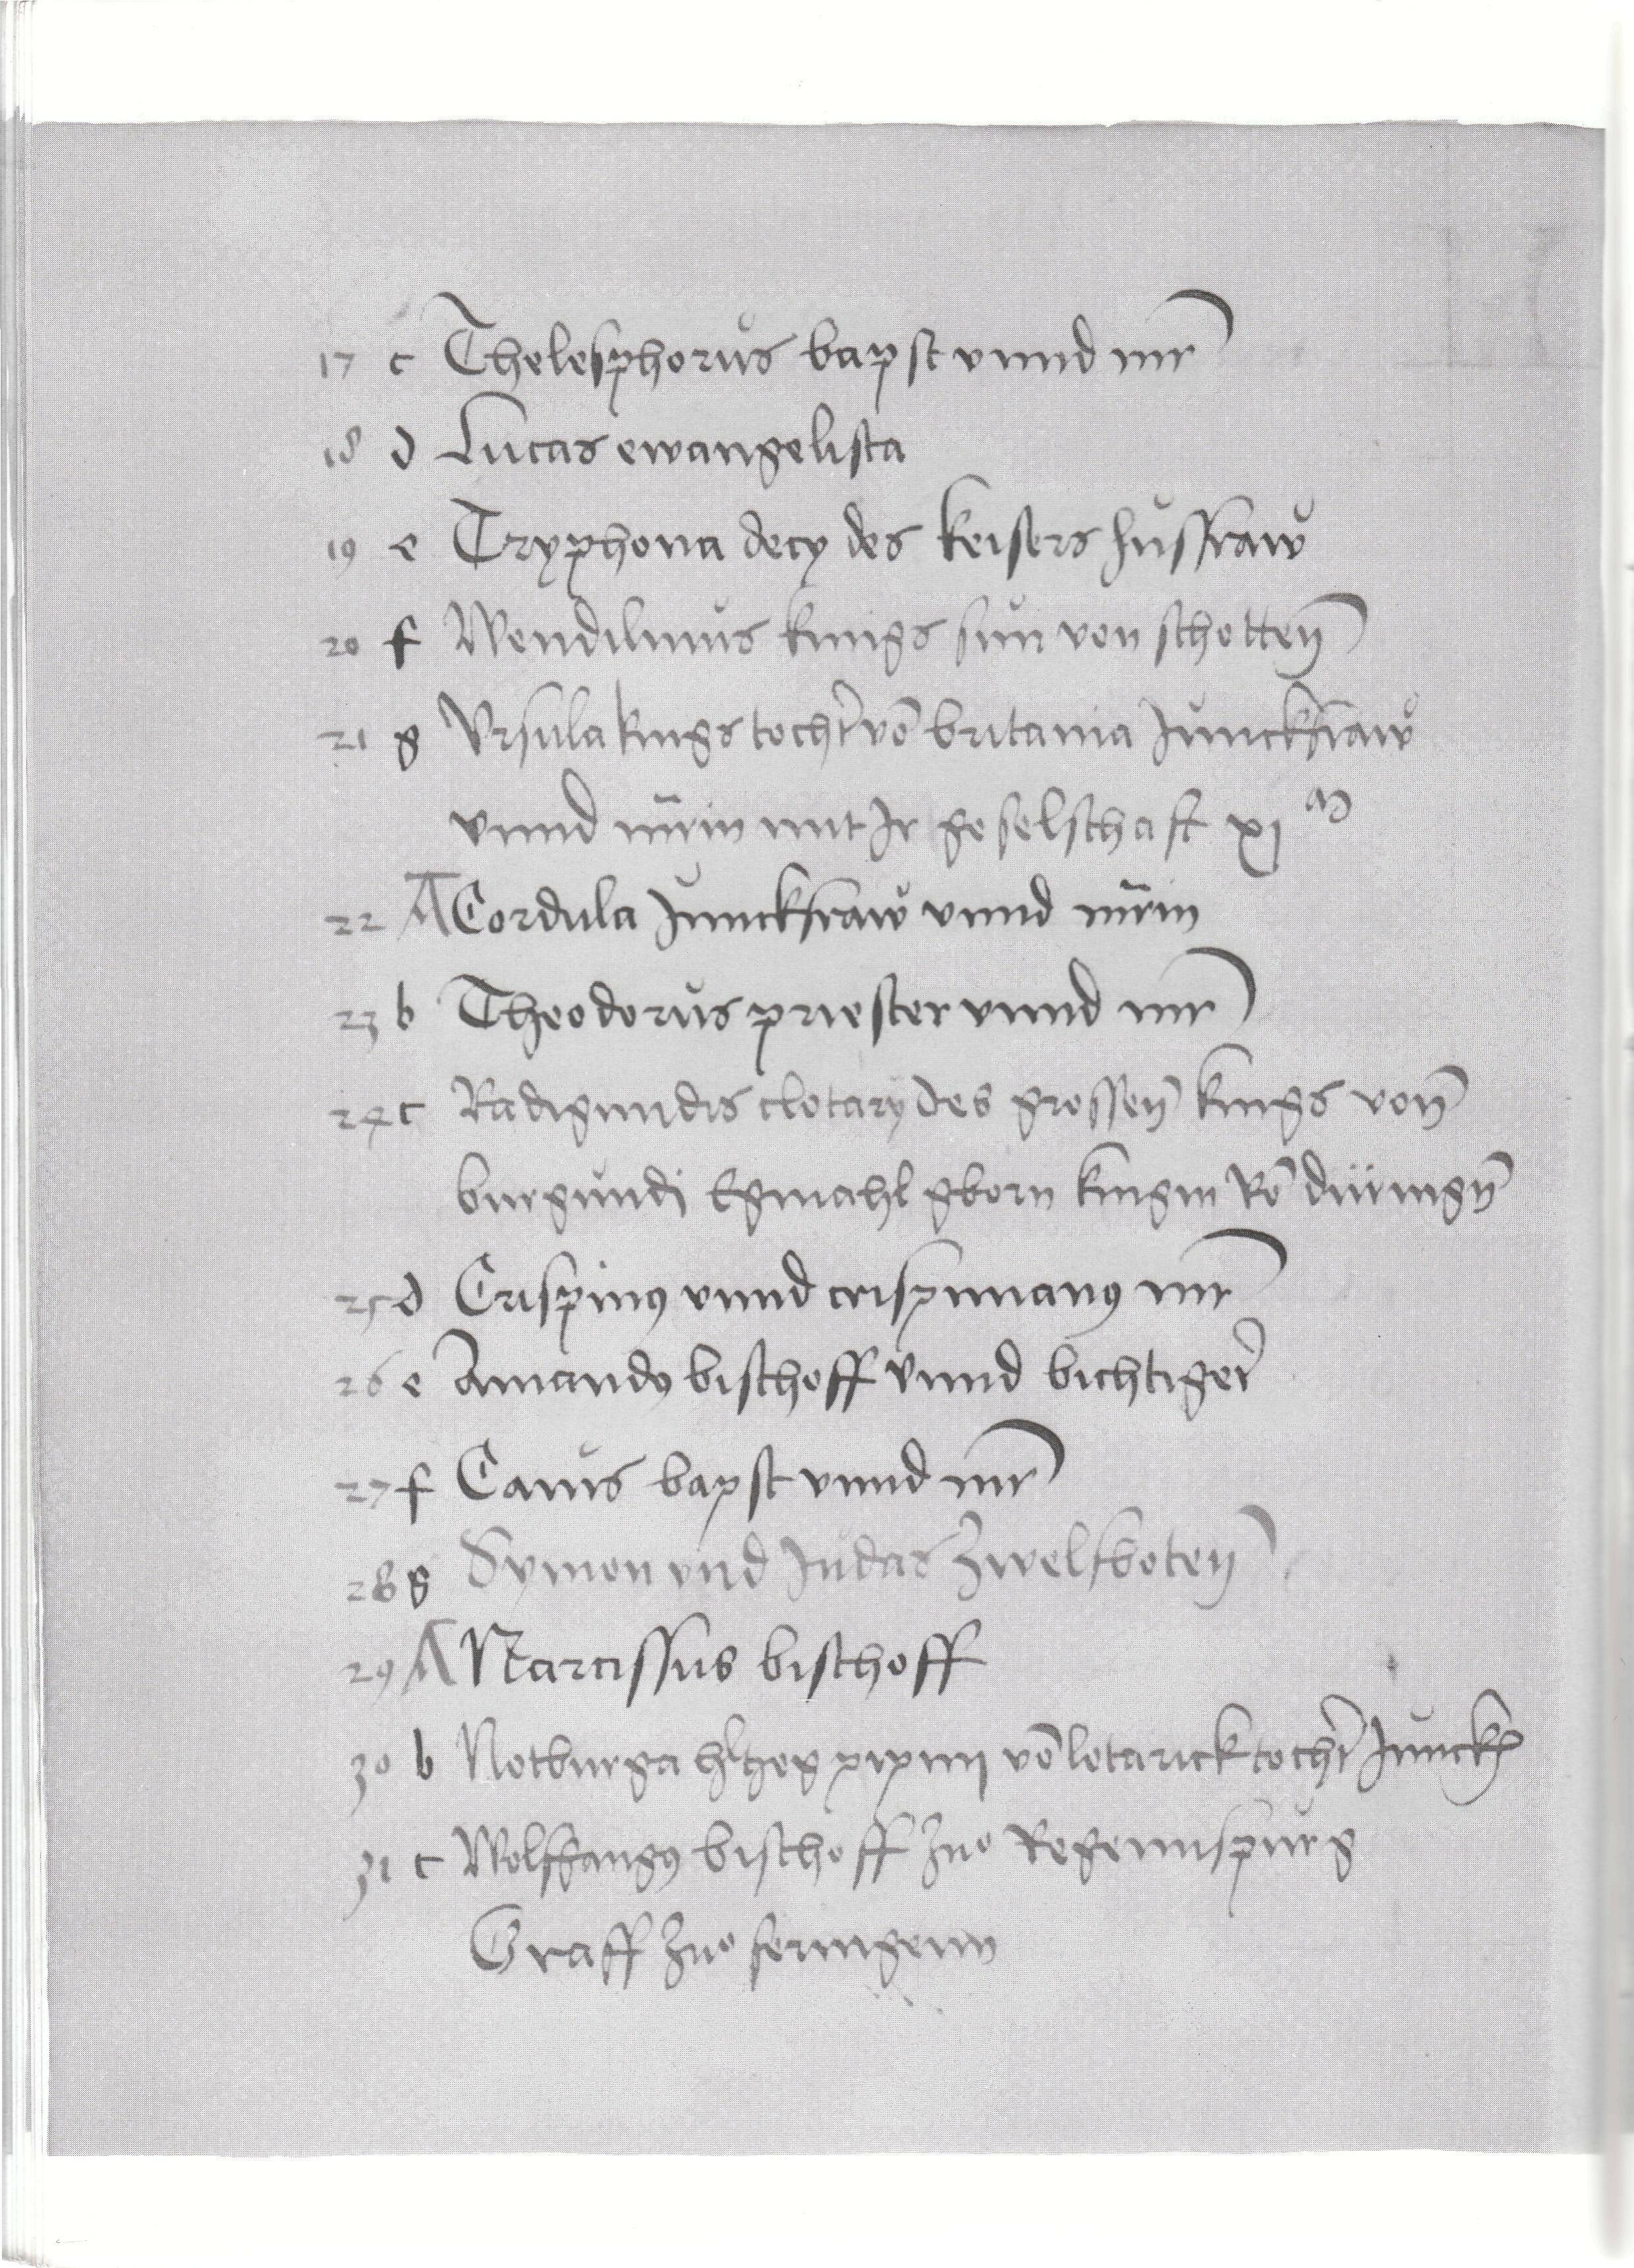 17 c Thelesphorůs bapst vnnd mr̄
18 d Lucas ewangelista
19 e Tryphona decy des keisers hůssfraẘ
20 f Wendilinůs kings sůn von schotten̄
21 g Vrsula kings tocht̄ vō britania Jůnckfraẘ
vnnd mr̄in mit Jr geselschaft xj
22 A Cordula Jůnckfraẘ vnnd mr̄in
23 b Theodorůs priester vnnd mr̄
24 c Radigundis clotarÿ des grossen̄ kings von̄
burgůndj Egmahl gborn kingin vō düringn̄
25 d Crispinꝰ vnnd crispinianꝰ mr̄
26 e Amandꝰ bischoff vnnd bichtiger̄
27 f Caiůs bapst vnnd mr̄
28 g Symon vnd Jůdas zwelfboten̄
29 A Narcissus bischoff
30 b Notburga pipinj vō lotarick tocht̄ Jůnckf
31 c Wolfgangꝰ bischoff zuo Regennspůrg
Graff zuo feringenn